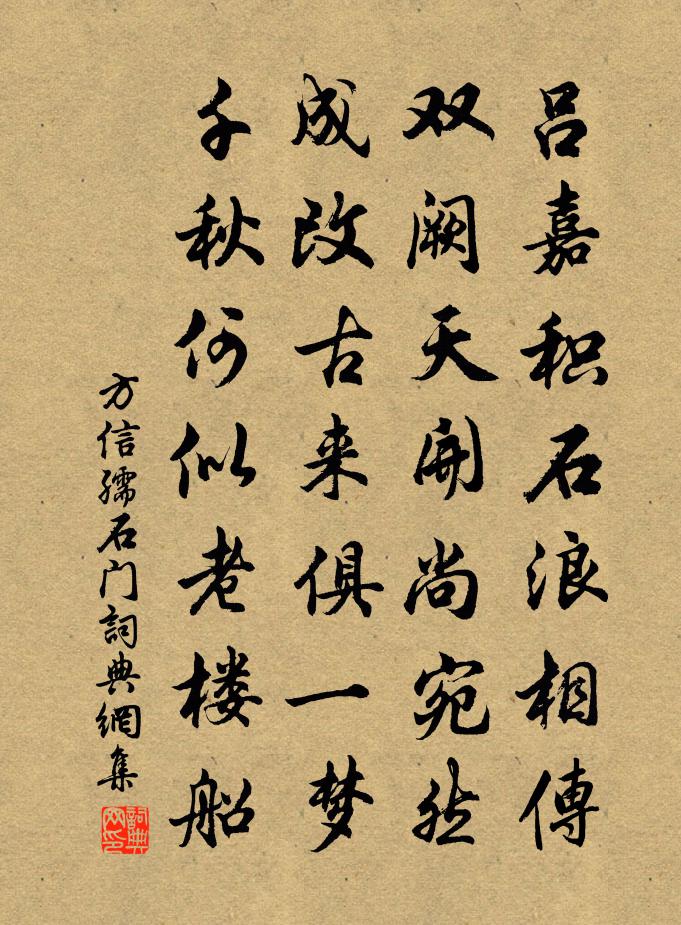 吕嘉积石浪相傳
双阙天開尚宛然
成改古来俱一梦
千秋何似老楼船
方信孺石门詞典網集
詞典网印